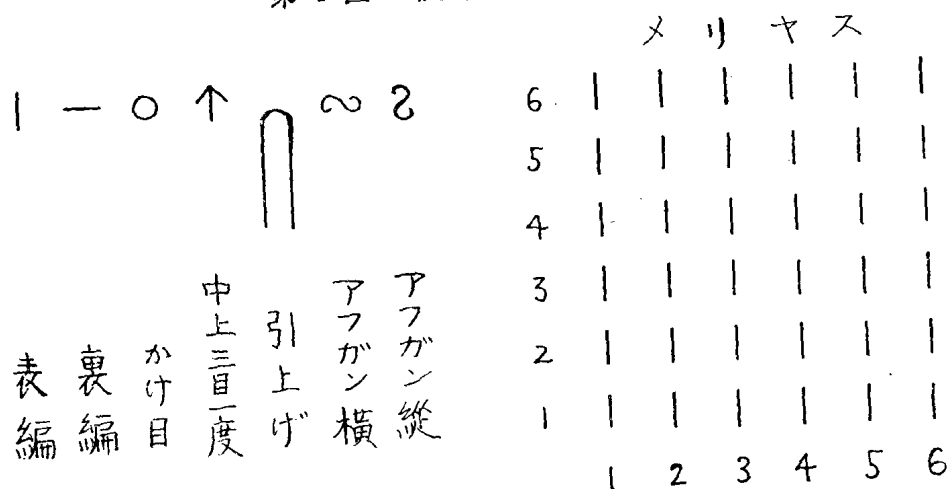 メリヤス
| — ○ ↑ ∩ ∾ 2
表編
裏編
かけ目
中上三目一度
引上げ
アフガン横
アフガン縦
6 | | | | | |
5 | | | | | |
4 | | | | | |
3 | | | | | |
2 | | | | | |
1 | | | | | |
1 2 3 4 5 6